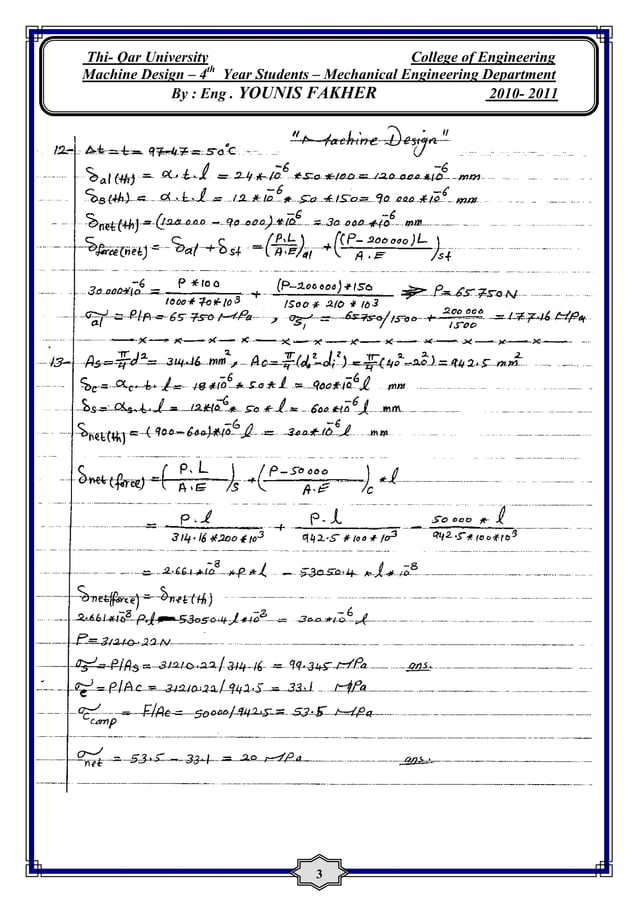 Thi- Oar University College of Engineering
Machine Design – 4th Year Students – Mechanical Engineering Department
By : Eng . YOUNIS FAKHER 2010- 2011
"Machine Design"
12- Δt = t = 97-47 = 50°C
δal(th) = α.t.l = 24*10^-6 *50*100 = 120 000*10^-6 mm
δs(th) = α.t.l = 12*10^-6 * 50*150 = 90 000*10^-6 mm
δnet(th) = (120 000 - 90 000)*10^-6 = 30 000*10^-6 mm
δforce(net) = δal + δst = (P.L / A.E)al + ((P-200 000)L / A.E)st
30 000*10^-6 = P*100 / 1000*70*10^3 + (P-200000)*150 / 1500*210*10^3 ⇒ P = 65 750 N
σal = P/A = 65 750 MPa , σs1 = 65750/1500 + 200 000/1500 = 177.16 MPa
13- As = π/4 d^2 = 314.16 mm^2, Ac = π/4 (do^2-di^2) = π/4 (40^2-20^2) = 942.5 mm^2
δc = αc.t.l = 18*10^-6 *50*l = 900*10^-6 l mm
δs = αs.t.l = 12*10^-6 * 50*l = 600*10^-6 l mm
δnet(th) = (900-600)*10^-6 l = 300*10^-6 l mm
δnet(force) = (P.L / A.E)s + (P-50 000 / A.E)c *l
= P.l / 314.16*200*10^3 + P.l / 942.5*100*10^3 - 50 000*l / 942.5*100*10^3
= 2.661*10^-8 *P*l - 53050.4 *l*10^-8
δnet(force) = δnet(th)
2.661*10^-8 P.l - 53050.4 l*10^-8 = 300*10^-6 l
P = 31210.22 N
σs = P/As = 31210.22/314.16 = 99.345 MPa ans.
σc = P/Ac = 31210.22/942.5 = 33.1 MPa
σc comp = F/Ac = 50000/942.5 = 53.5 MPa
σnet = 53.5 - 33.1 = 20 MPa ans.
3